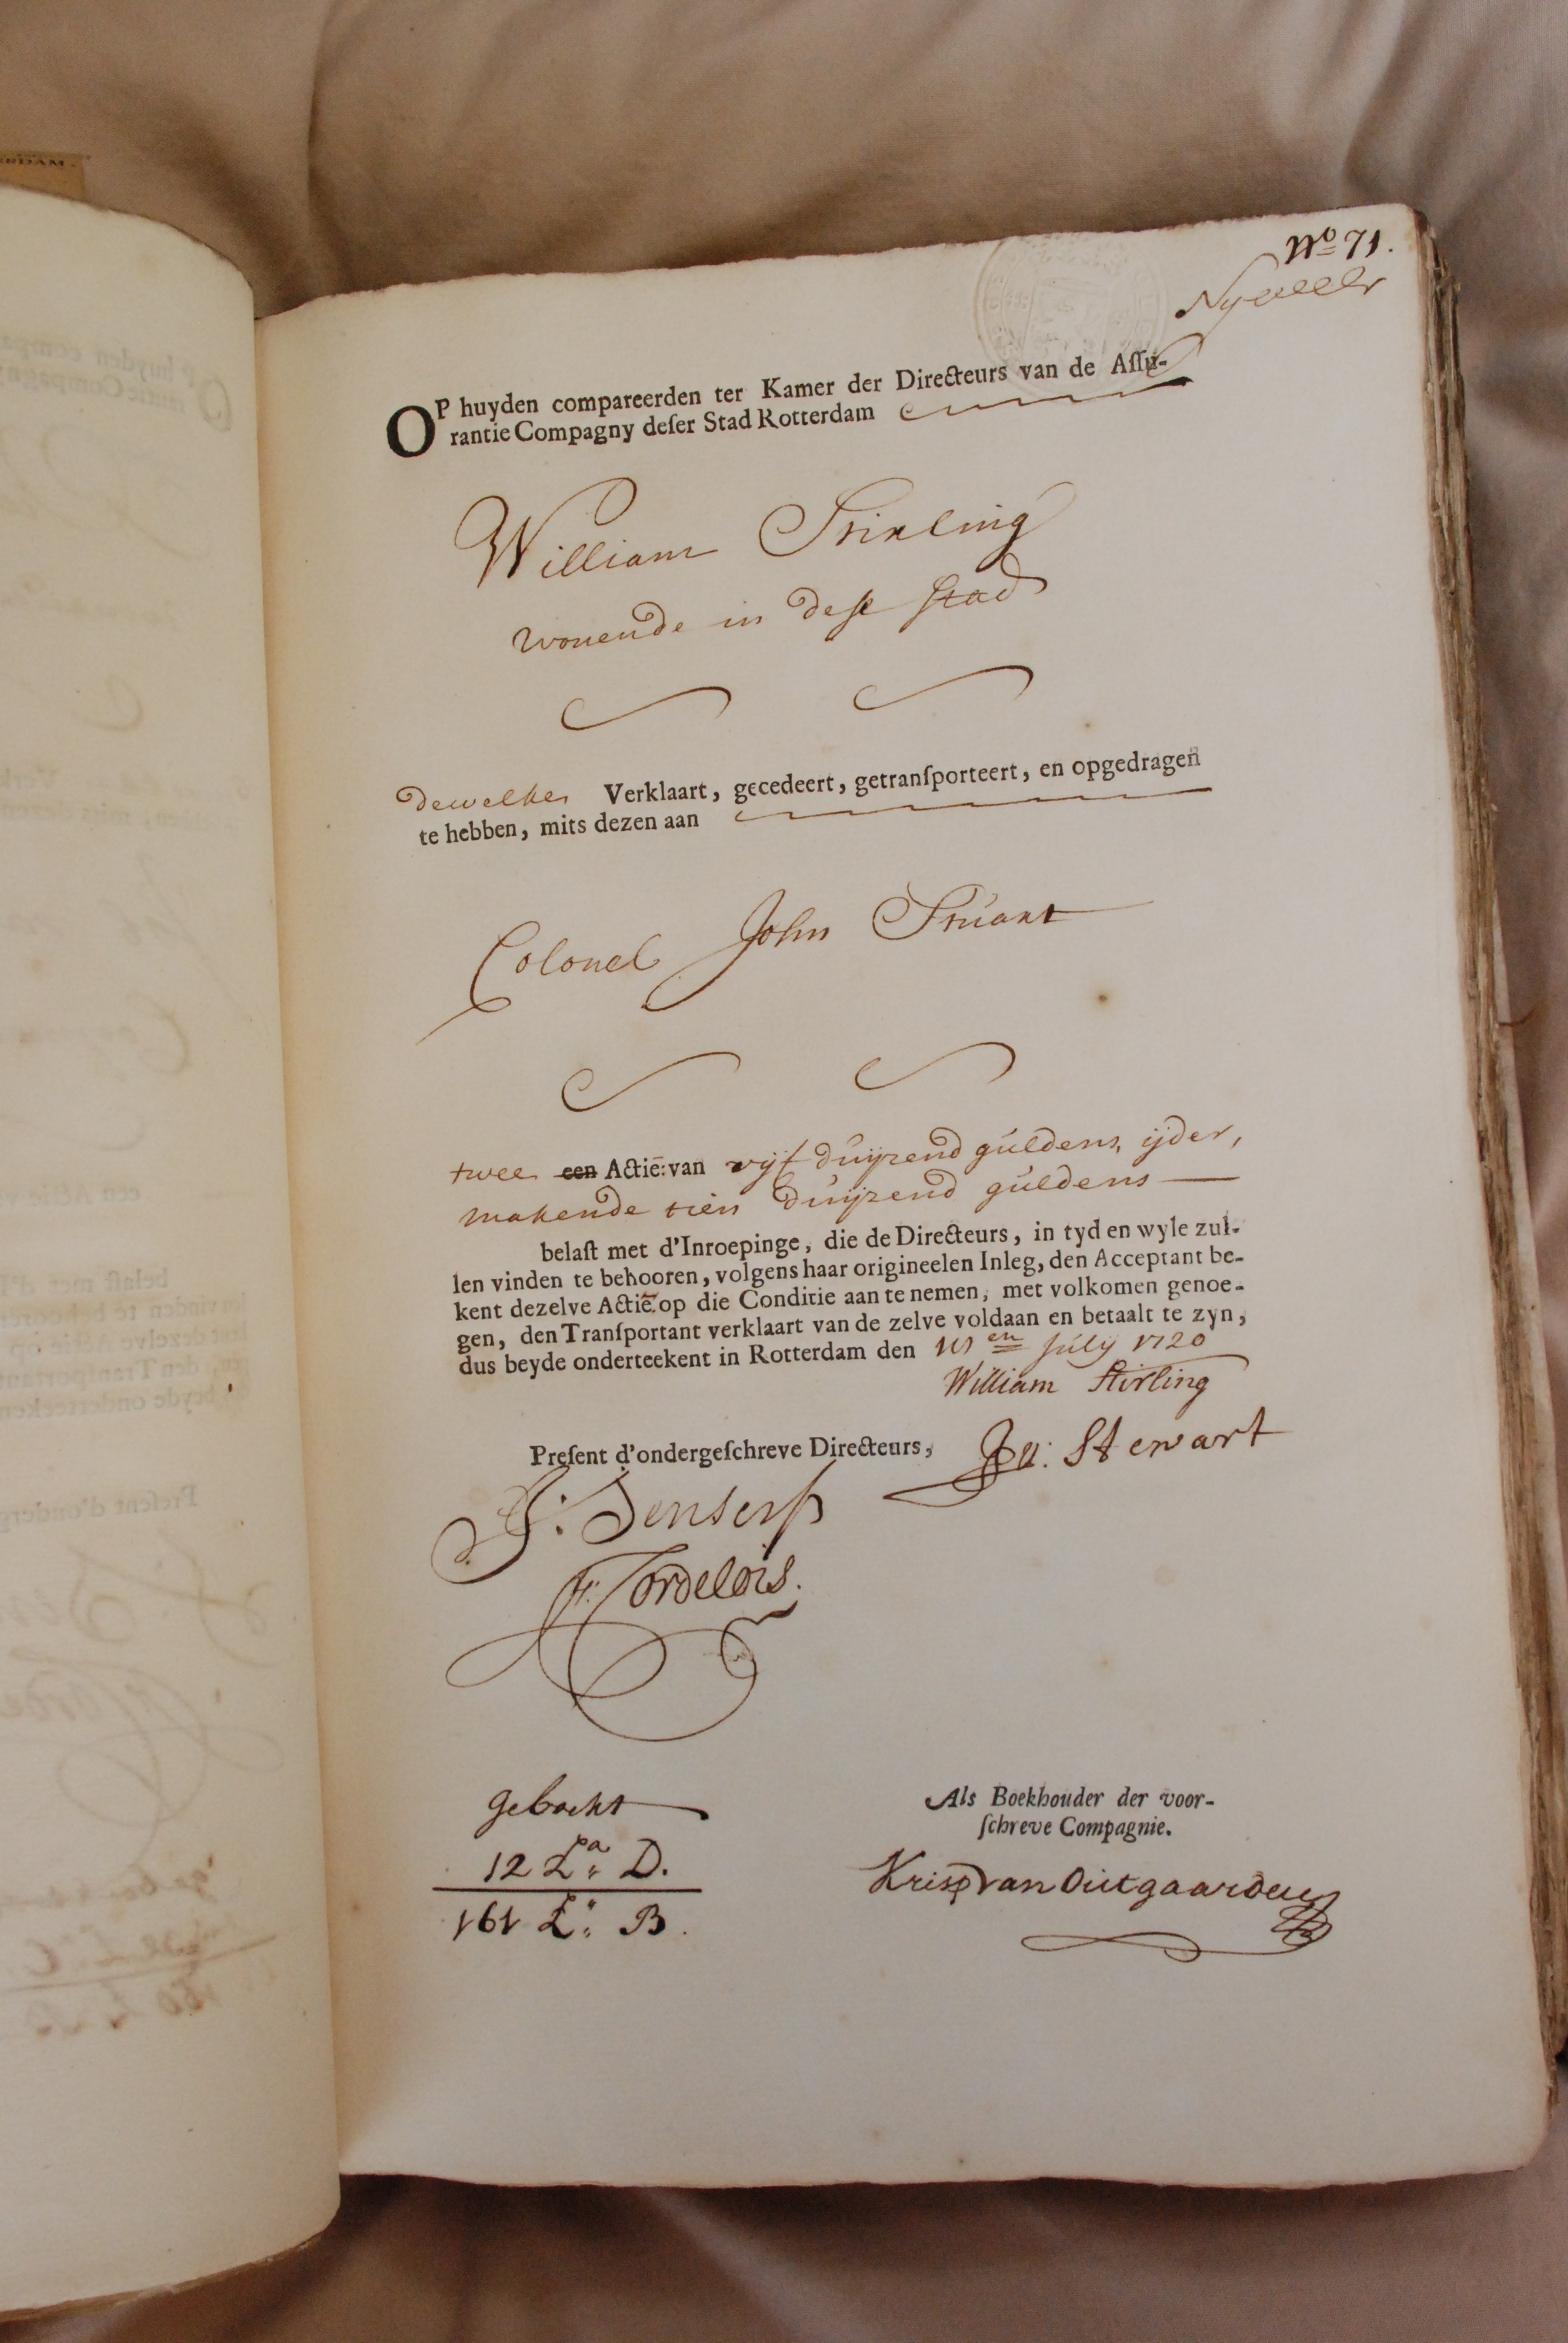 No 71.
OP huyden compareerden ter Kamer der Directeurs van de Aſſu-
rantie Compagny deſer Stad Rotterdam
William Stirling
wonende in dese stad
dewelke Verklaart, gecedeert, getranſporteert, en opgedragen
te hebben, mits dezen aan
Colonel John Stuart
twee een Actie: van vyf duijzend guldens, ijder,
makende tien duijzend guldens
belaſt met d'Inroepinge, die de Directeurs, in tyd en wyle zul-
len vinden te behooren, volgens haar origineelen Inleg, den Acceptant be-
kent dezelve Actie op die Conditie aan te nemen, met volkomen genoe-
gen, den Tranſportant verklaart van de zelve voldaan en betaalt te zyn,
dus beyde onderteekent in Rotterdam den en July 1720
William Stirling
Preſent d'ondergeſchreve Directeurs, Jo: Stewart
F: Cordelois.
geboekt
12 La D.
161 L: B.
Als Boekhouder der voor-
ſchreve Compagnie.
Krisp van Outgaarden